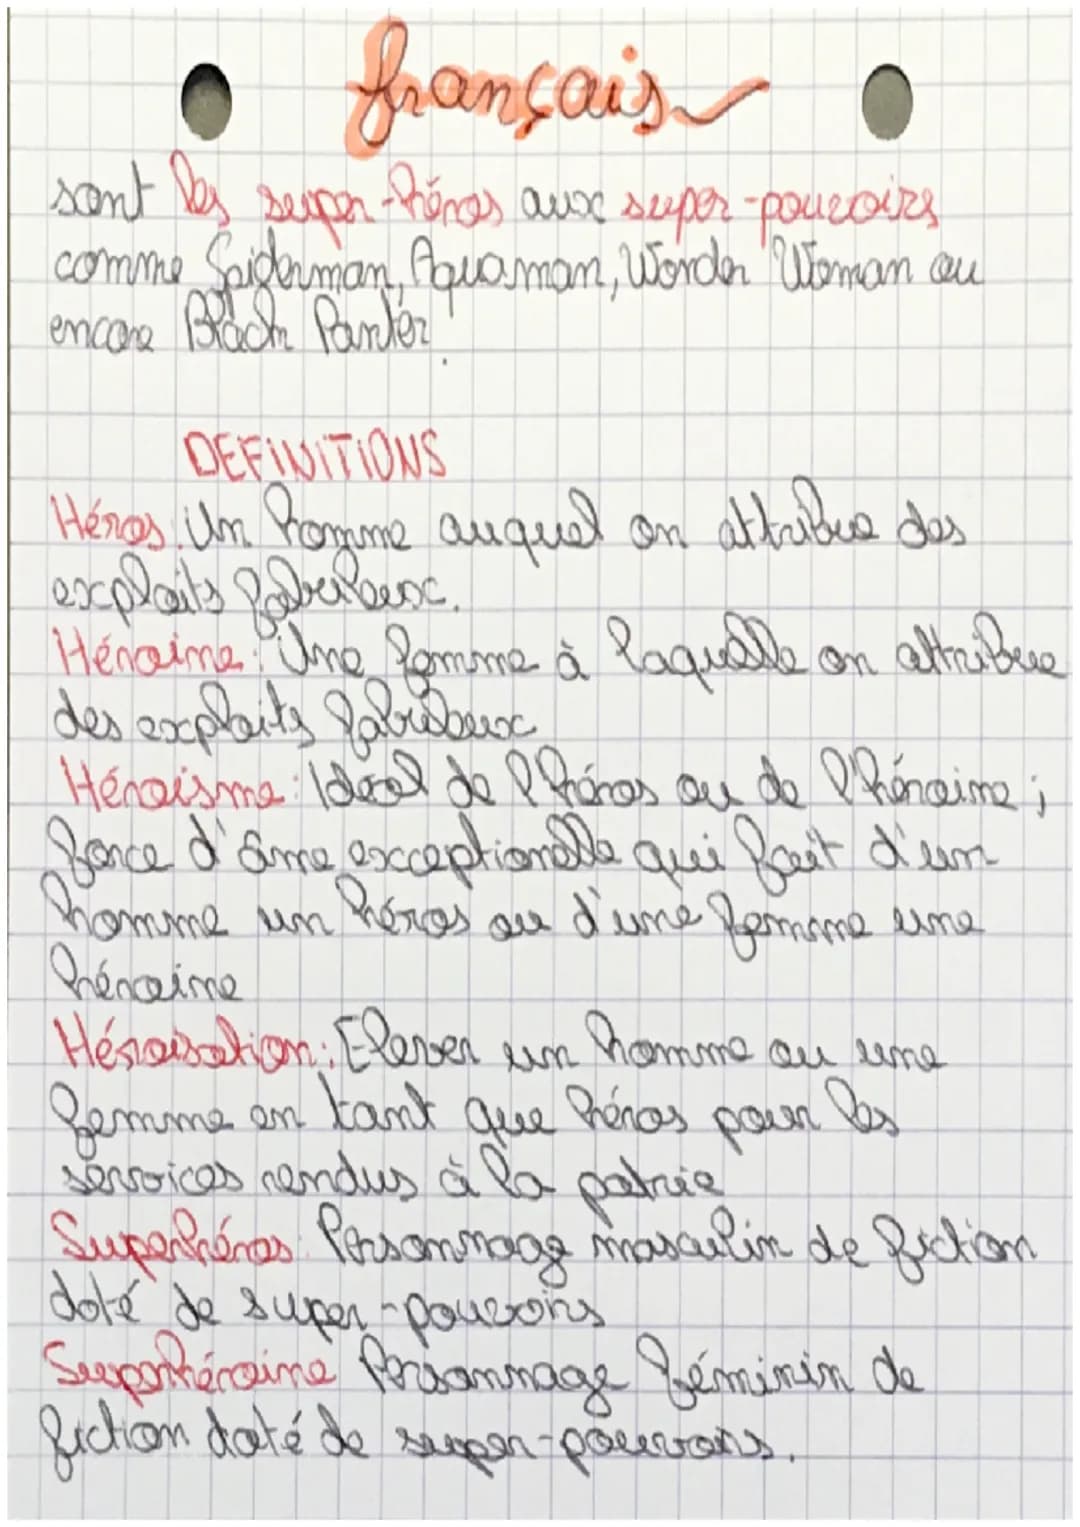 français
sont les super-héros aux super-pouvoirs
comme Spiderman, Aquaman, Wonder Woman ou
encore Black Panter.
DEFINITIONS
Héros: Un homme auquel on attribue des
exploits fabuleux.
Héroïne: Une femme à laquelle on attribue
des exploits fabuleux
Héroïsme: Idéal de l'héros ou de l'héroïne;
force d'âme exceptionelle qui fait d'un
homme un héros ou d'une femme une
héroïne
Héroïsation: Elever un homme ou une
femme en tant que héros pour les
services rendus à la patrie
Superhéros: Personnage masculin de fiction
doté de super-pouvoirs
Superhéroïne Personnage féminin de
fiction doté de super-pouvoirs.